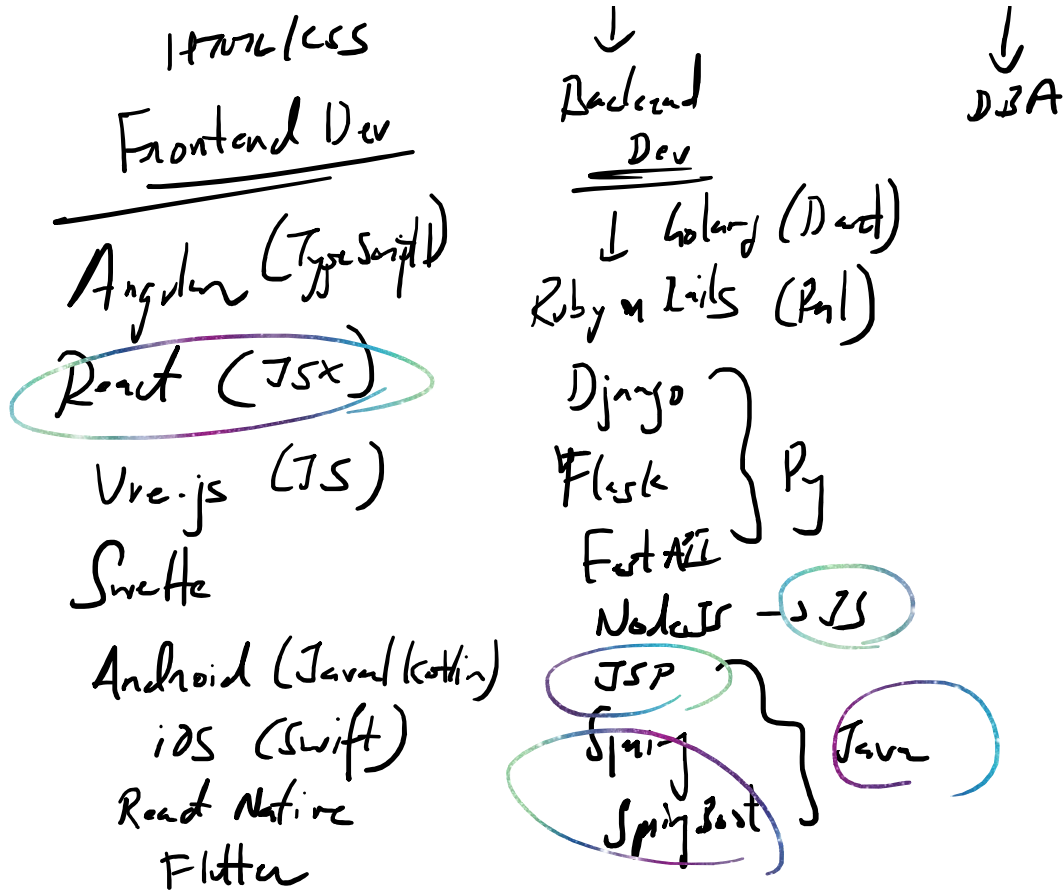 HTML/CSS
Frontend Dev
Angular (TypeScript)
React (JSX)
Vue.js (JS)
Svelte
Android (Java/Kotlin)
iOS (Swift)
React Native
Flutter
Backend
Dev
Golang (Dart)
Ruby on Rails (Perl)
Django
Flask
Py
FastAPI
NodeJS → JS
JSP
Spring
Java
SpringBoot
DBA